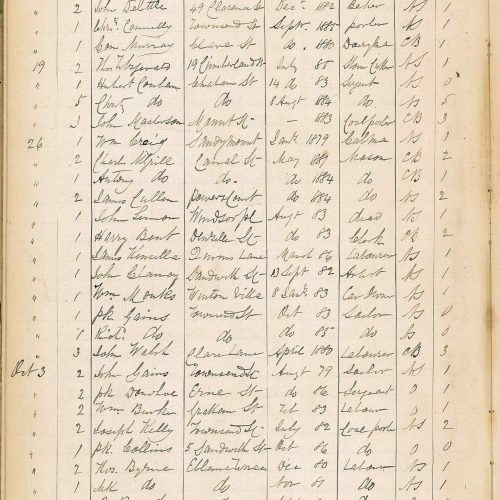 " 2 John Tuttle 49 Clarence St Dec. 1882 Baker NS 1
" 1 Chrs. Connelly Townsend St Sept. 1885 porter NS 1
" 1 Con Murray Clare St do. 1880 Dairyman CB 1
19 2 Thos Fitzgerald 19 Cumberland St July 85 Stone Cutter NS 1
" 1 Hubert Conham Graham St 14 do 83 Sergt NS 0
" 5 Christy do do 8 Augt 1884 do NS 5
" 3 John Mawson Mount St — 1883 Coal porter CB 3
26 1 Wm Craig Sandymount Jany 1879 NS 1
" 2 Charles St May 1889 Mason CB 2
" 1 Antony do do. do 1884 do CB 1
" 2 James Cullen Powers Court do 1884 do NS 2
" 1 John Windsor pl Augt 83 dead NS 1
" 1 Harry Bent Denzille St do 83 Clerk CB 2
" 1 James Kinsella Lane March 86 Labourer NS 1
" 1 John Clancy Sandwith St 13 Sept 82 Artist NS 1
" 1 Wm Monks Winton Villa 8 Jany 83 Car Owner NS 1
" 1 Pk Gains Townsend St Oct 83 Sailor NS 0
" 1 Richd. do do do 85 do NS 0
" 3 John Walsh Clare Lane April 1880 Labourer CB 3
Oct 3 2 John Gains Townsend St Augt 79 Sailor NS 1
" 2 Pk Donohoe Erne St do 86 Sergeant 0 1
" 2 Wm Burke Graham St Feb 83 Labour 0 1
" 2 Joseph Kelly Townsend St July 82 Coal porter NS 2
" 1 Pk. Collins 5 Sandwith St Oct 86 do 0 0
" 2 Thos. Byrne Eblana Dec 80 Labour NS 1
" 1 Mk do do Nov 81 do NS 1